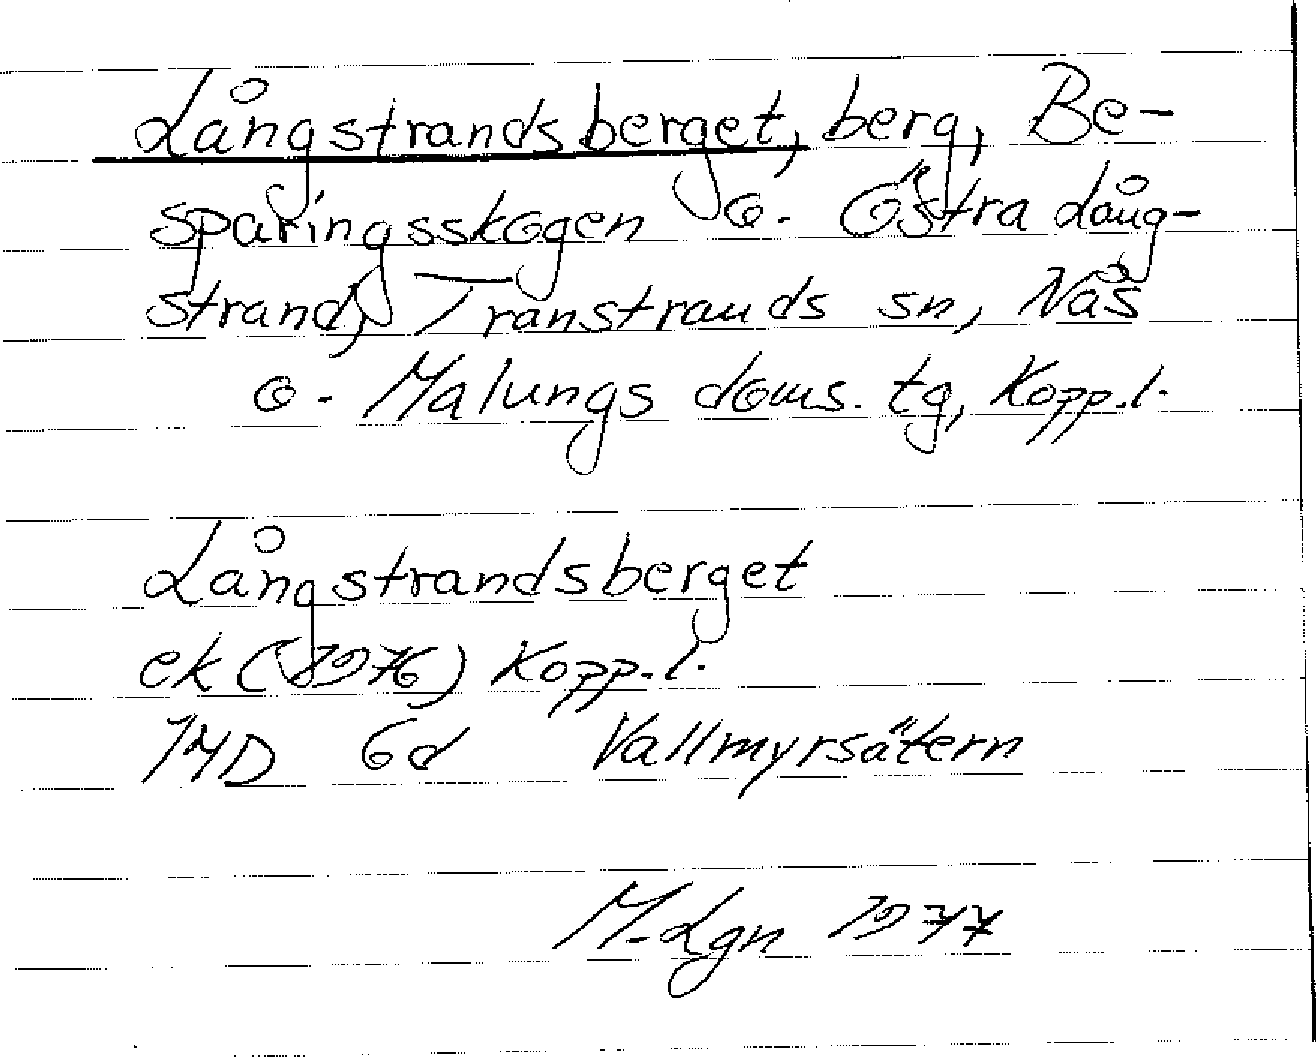 Långstrandsberget, berg, Be-
sparingsskogen o. Östra Lång-
strand, Transtrands sn, Nås
o. Malungs doms. tg, Kopp.l.
Långstrandsberget
ek (1976) Kopp.l.
14D 6d Vallmyrsätern
M.Lgn 1977